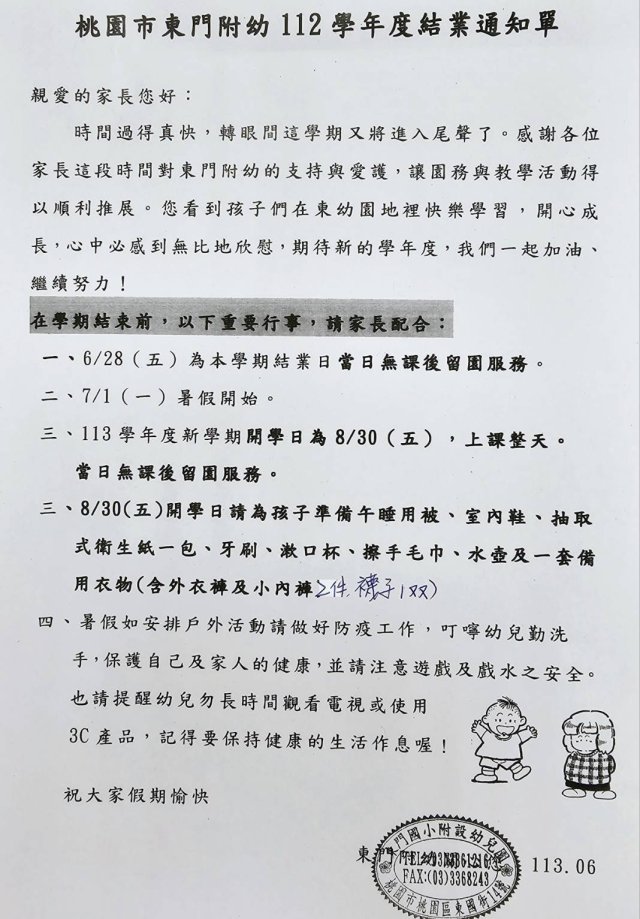 桃園市東門附幼112學年度結業通知單
親愛的家長您好：
時間過得真快，轉眼間這學期又將進入尾聲了。感謝各位
家長這段時間對東門附幼的支持與愛護，讓園務與教學活動得
以順利推展。您看到孩子們在東幼園地裡快樂學習，開心成
長，心中必感到無比地欣慰，期待新的學年度，我們一起加油、
繼續努力！
在學期結束前，以下重要行事，請家長配合：
一、6/28（五）為本學期結業日當日無課後留園服務。
二、7/1（一）暑假開始。
三、113學年度新學期開學日為8/30（五），上課整天。
當日無課後留園服務。
三、8/30(五)開學日請為孩子準備午睡用被、室內鞋、抽取
式衛生紙一包、牙刷、漱口杯、擦手毛巾、水壺及一套備
用衣物(含外衣褲及小內褲2件,襪子1双)
四、暑假如安排戶外活動請做好防疫工作，叮嚀幼兒勤洗
手，保護自己及家人的健康，並請注意遊戲及戲水之安全。
也請提醒幼兒勿長時間觀看電視或使用
3C產品，記得要保持健康的生活作息喔！
祝大家假期愉快
東門國小附設幼兒園
東門
113.06
FAX:(03)3368243
桃園市桃園區東國街14號